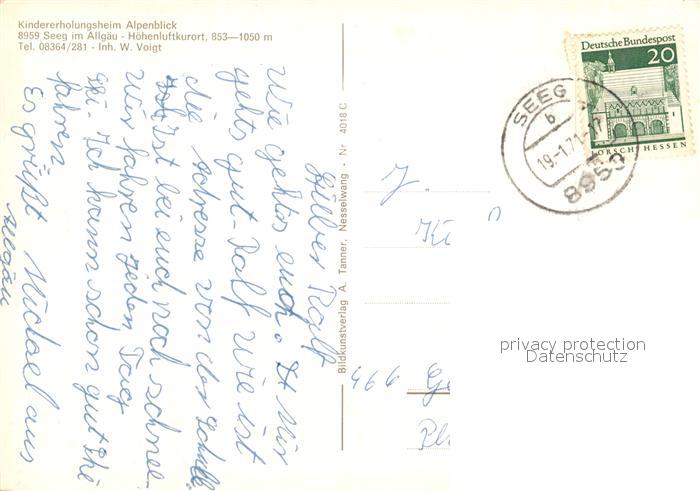 Kindererholungsheim Alpenblick
8959 Seeg im Allgäu - Höhenluftkurort, 853—1050 m
Tel. 08364/281 - Inh. W. Voigt
Lieber Ralf
Wie gehts euch. Mir
gehts gut. Ralf wie ist
die Adresse von der Schule
Ist bei euch noch Schnee
Wir fahren jeden Tag
Ski. Ich kann schon gut Ski
fahren
Es grüßt Michael aus
Allgäu
Bildkunstverlag A. Tanner, Nesselwang · Nr. 4018 C
Deutsche Bundespost
20
LORSCH/HESSEN
SEEG
b
19.-1.71-17
8959
J.
466 Ge
privacy protection
Datenschutz